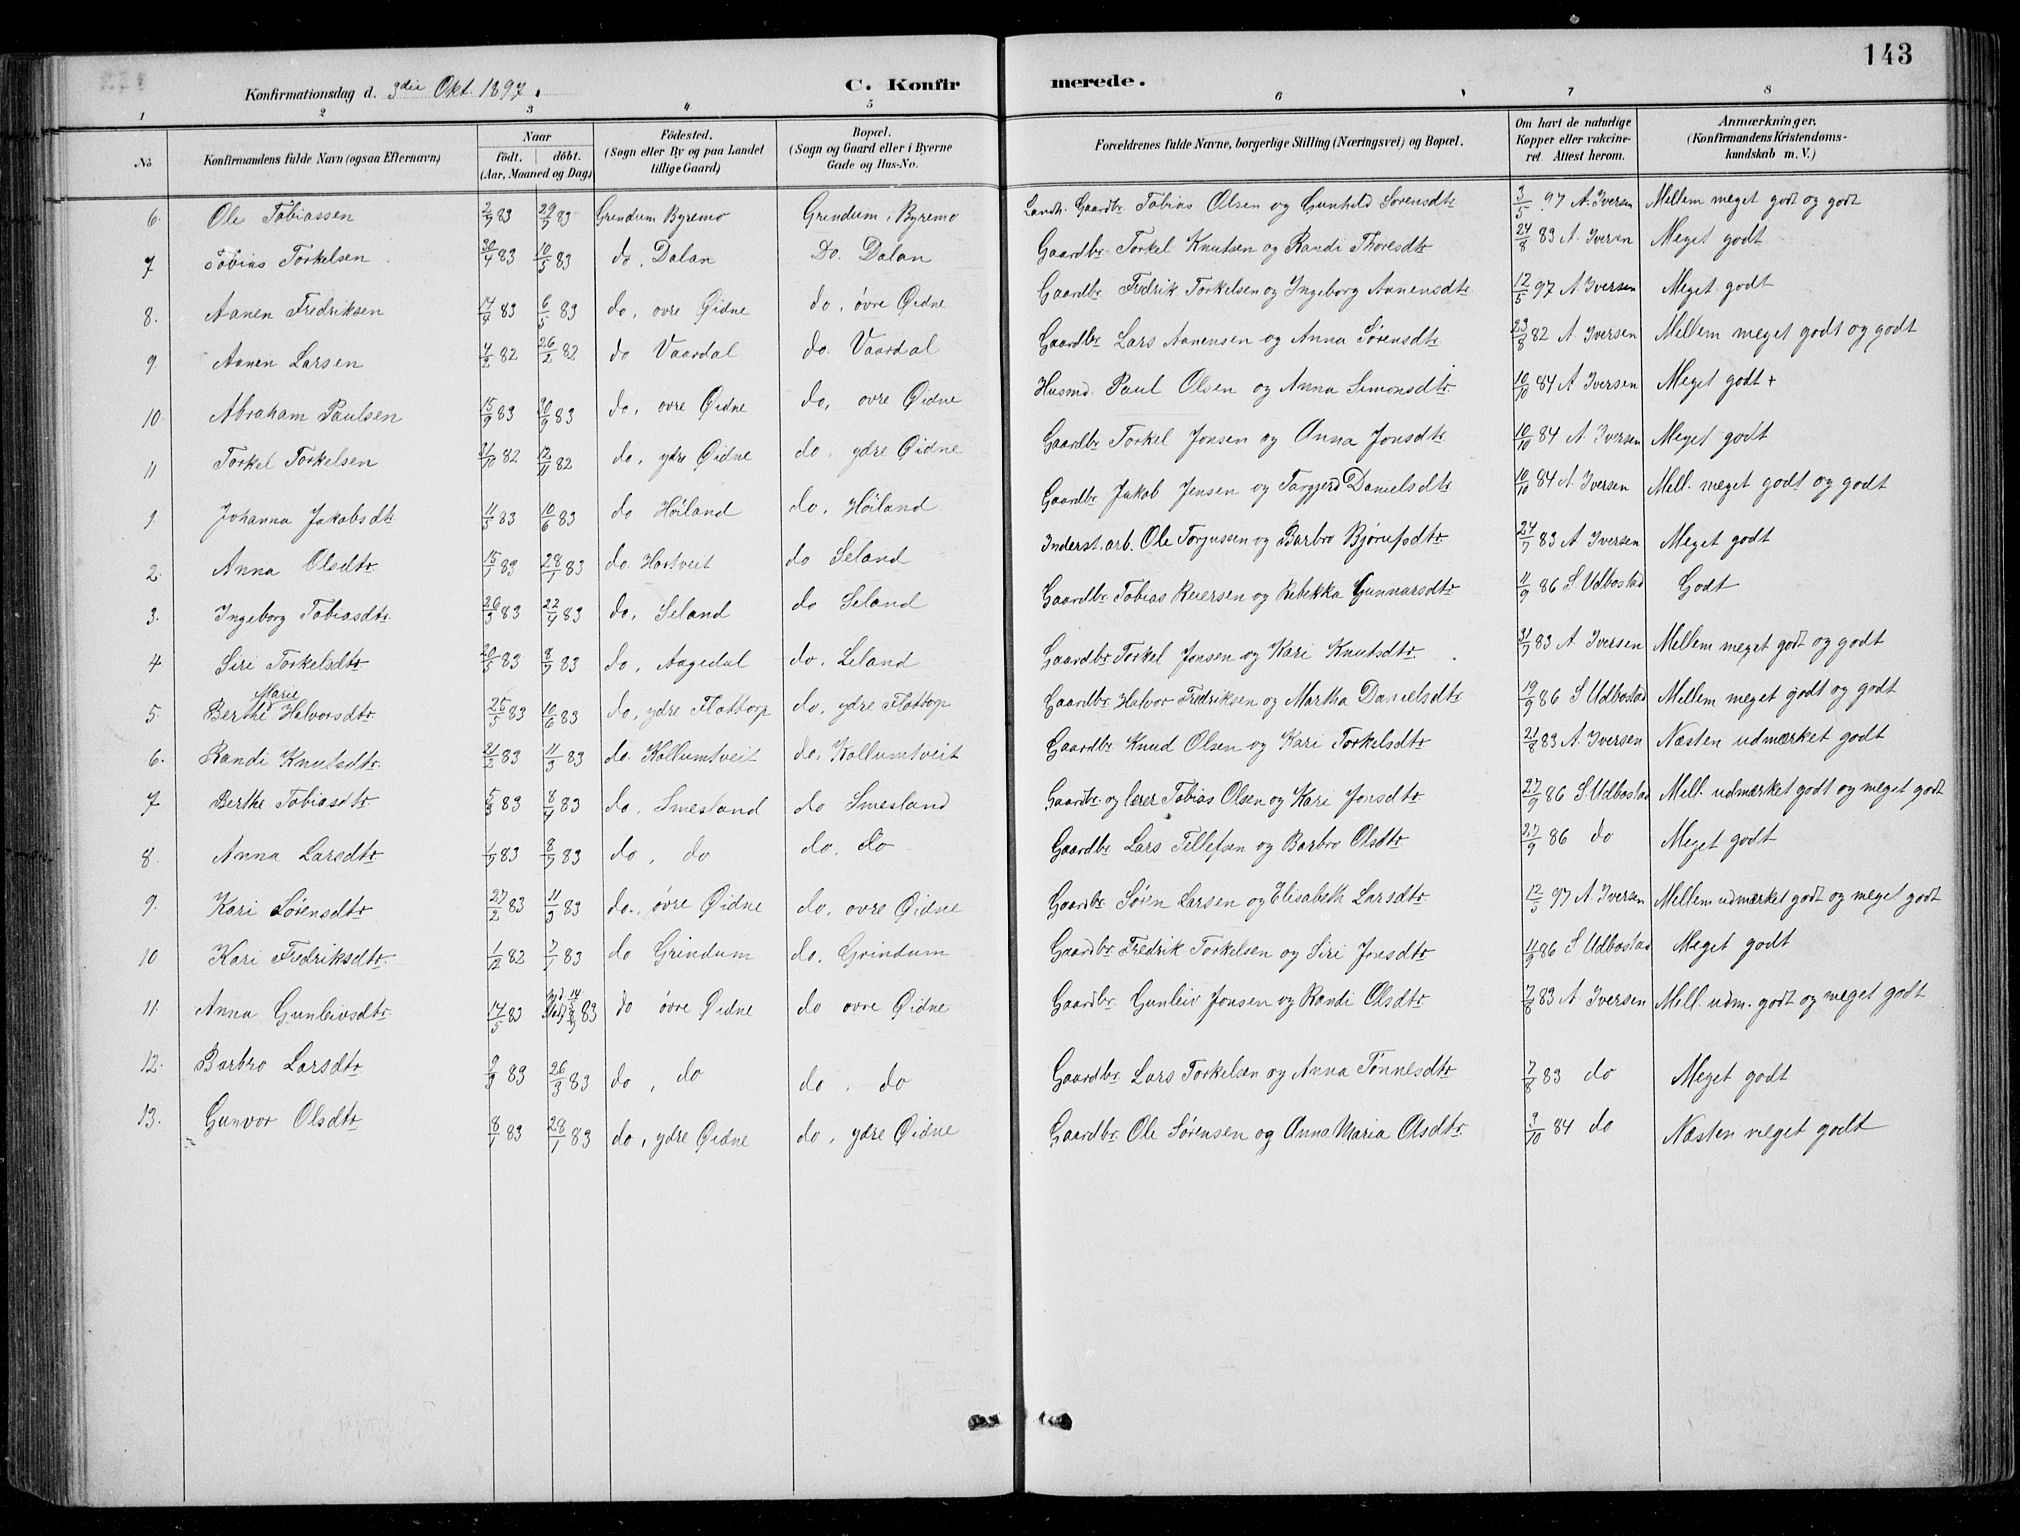 143
Konfirmationsdag d. 3die Okt. 1897.
C. Konfirmerede.
1 2 3 4 5 6 7 8
No. Konfirmandens fulde Navn (ogsaa Efternavn) Naar født. døbt. (Aar, Maaned og Dag) Födested. (Sogn eller By og paa Landet tillige Gaard) Bopæl. (Sogn og Gaard eller i Byerne Gade og Hus-No. Forældrenes fulde Navne, borgerlige Stilling (Næringsvei) og Bopæl. Om havt de naturlige Kopper eller vakcineret Attest herom. Anmærkninger. (Konfirmandens Kristendomskundskab m. V.)
6. Ole Tobiassen 2/7 83 29/7 83 Grendum Byremo Grendum, Byremo Landh. Gaardbr. Tobias Olsen og Gunhild Sørensdtr 3/5 97 A. Iversen Mellem meget godt og godt
7 Tobias Torkelsen 30/4 83 10/5 83 do, Dalan Do. Dalan Gaardbr. Torkel Knutsen og Randi Thoresdtr 24/8 83 A. Iversen Meget godt
8. Aanen Fredriksen 14/4 83 6/5 83 do, ovre Øidne do, øvre Øidne Gaardbr Fredrik Torkelsen og Ingeborg Aanensdtr 12/5 97 A. Iversen Meget godt
9. Aanen Larsen 4/2 82 26/2 82 do Vaardal do. Vaardal Gaardbr Lars Aanensen og Anna Sørensdtr 23/8 82 A Iversen Mellem meget godt og godt
10. Abraham Paulsen 15/9 83 30/9 83 do, ovre Øidne do, ovre Øidne Husmd. Paul Olsen og Anna Simonsdtr 10/10 84 A Iversen Meget godt +
11 Torkel Torkelsen 31/10 82 12/11 82 do, ydre Øidne do, ydre Øidne Gaardbr Torkel Jonsen og Anna Jonsdtr 10/10 84 A. Iversen Meget godt
1. Johanna Jakobsdtr 11/5 83 10/6 83 do Høiland do, Høiland Gaardbr Jakob Jensen og Targjerd Danielsdtr 10/10 84 A Iversen Mell. meget godt og godt
2. Anna Olsdtr 15/1 83 28/1 83 do. Hartveit do Seland Inderst. arb. Ole Torjussen og Barbro Bjørufsdtr 24/7 83 A Iversen Meget godt
3. Ingeborg Tobiasdtr. 26/3 83 22/4 83 do, Seland do Seland Gaardbr Tobias Reiersen og Rebekka Gunnarsdtr 11/9 86 S. Udbostad Godt
4 Siri Torkelsdtr 20/5 83 8/7 83 do, Aagedal do. Leland Gaardbr Torkel Jonsen og Kari Knutsdtr 31/7 83 A Iversen Mellem meget godt og godt
5. Berthe Marie Halvorsdtr 25/5 83 10/6 83 do, ydre Flottorp do, ydre Flottorp Gaardbr Halvor Fredriksen og Martha Danielsdtr 19/9 86 S Udbostad Mellem meget godt og godt
6. Randi Knutsdtr. 21/2 83 11/3 83 do. Kollumtveit do, Kollumtveit Gaardbr Knud Olsen og Kari Torkelsdtr 21/8 83 A. Iversen Næsten udmærket godt
7 Berthe Tobiasdtr 5/3 83 8/4 83 do, Smesland do Smesland Gaardbr. og lærer Tobias Olsen og Kari Jonsdtr 27/9 86 S Udbostad Mell. udmærket godt og meget godt
8. Anna Larsdtr 1/7 83 8/7 83 do, do do. do Gaardbr Lars Tellefsen og Barbro Olsdtr 27/9 86 do Meget godt
9. Kari Sørensdtr 27/2 83 11/3 83 do., øvre Øidne do, ovre Øidne Gaardbr Søren Larsen og Elisabeth Larsdtr 12/5 97 A Iversen Mellem udmærket godt og meget godt
10 Kari Fredriksdtr. 1/12 82 7/1 83 do Grindum do. Grindum Gaardbr Fredrik Torkelsen og Siri Jonsdtr 11/9 86 S Udbostad Meget godt
11. Anna Gunleivsdtr. 14/5 83 83 do øvre Øidne do ovre Øidne Gaardbr. Gunleiv Jonsen og Randi Olsdtr 7/8 83 A. Iversen Mell. udm. godt og meget godt
12. Barbro Larsdtr 9/3 83 26/3 83 do, do do. do Gaardbr Lars Torkelsen og Anna Tønnesdtr 7/8 83 do Meget godt
13. Gunvor Olsdtr 8/1 83 28/1 83 do, ydre Øidne do, ydre Øidne Gaardbr. Ole Sørensen og Anna Maria Olsdtr. 3/10 84 do Næsten meget godt